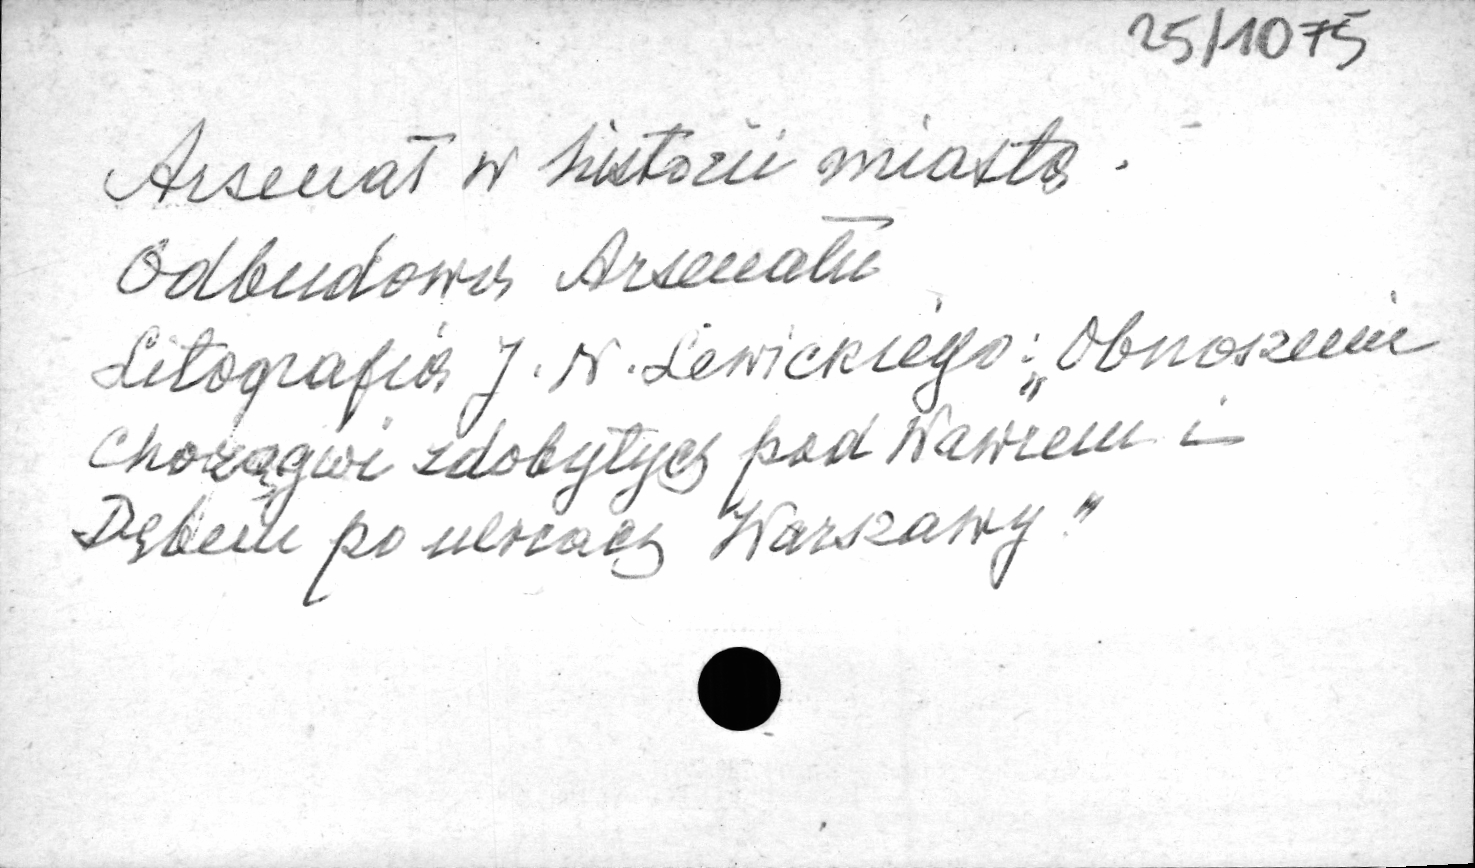 25/1075
Arsenał w historii miasta.
Odbudowa Arsenału
Litografia J. N. Lewickiego: „Obnoszenie
chorągwi zdobytych pod Wawrem i
Dębem po ulicach Warszawy"